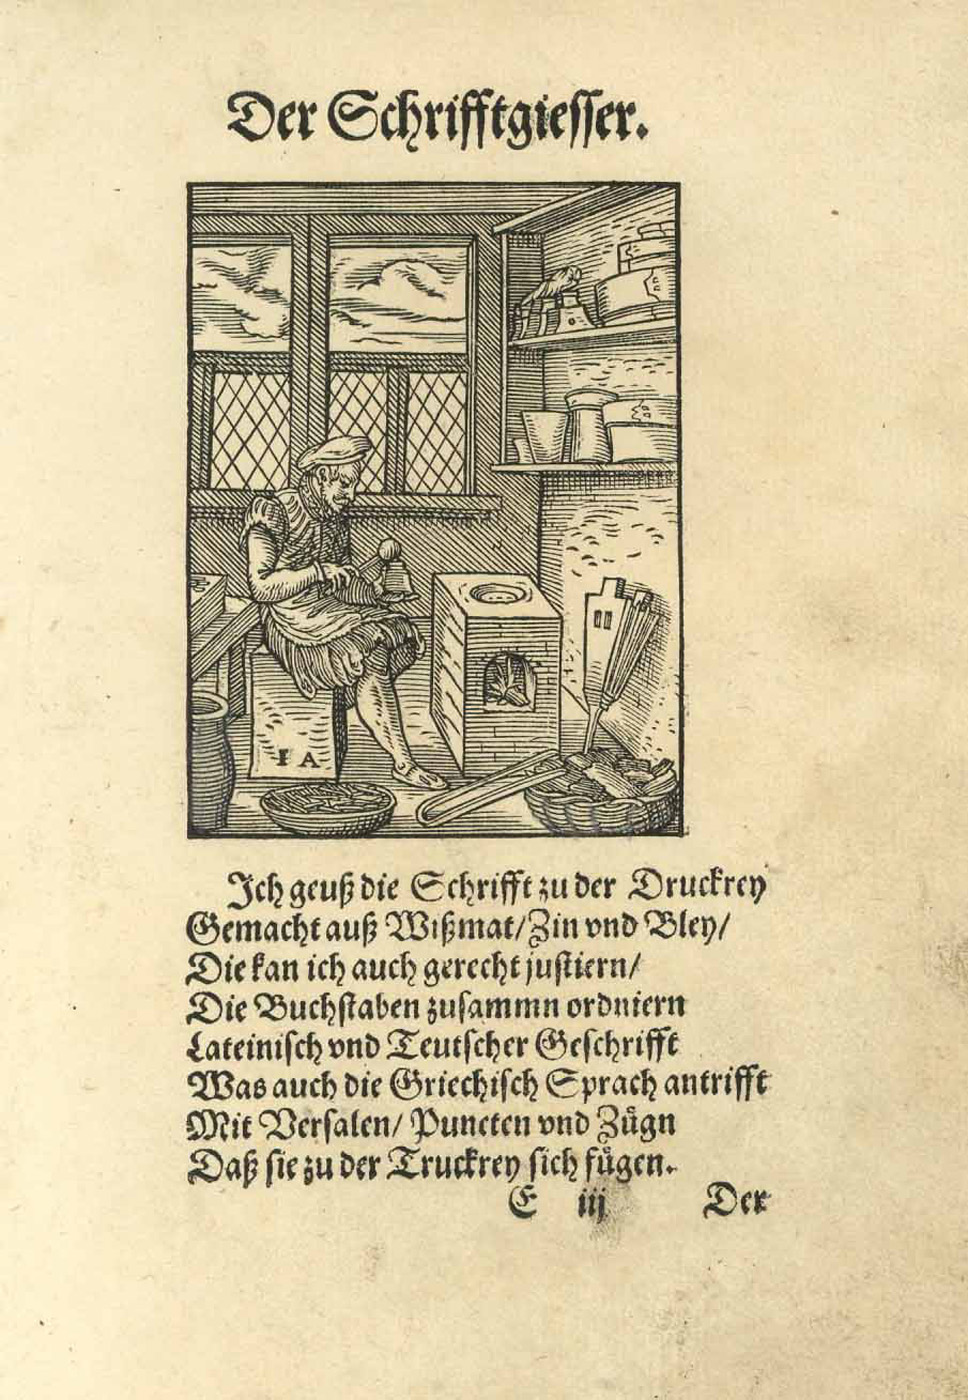 Der Schrifftgiesser.
IA
Ich geuß die Schrifft zu der Druckrey
Gemacht auß Wißmat/ Zin vnd Bley/
Die kan ich auch gerecht justiern/
Die Buchstaben zusammn ordniern
Lateinisch vnd Teutscher Geschrifft
Was auch die Griechisch Sprach antrifft
Mit Versalen/ Puncten vnd Zügn
Daß sie zu der Truckrey sich fügen.
E iij Der